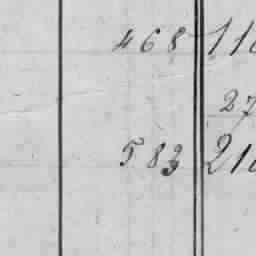 468 110
27
583 210